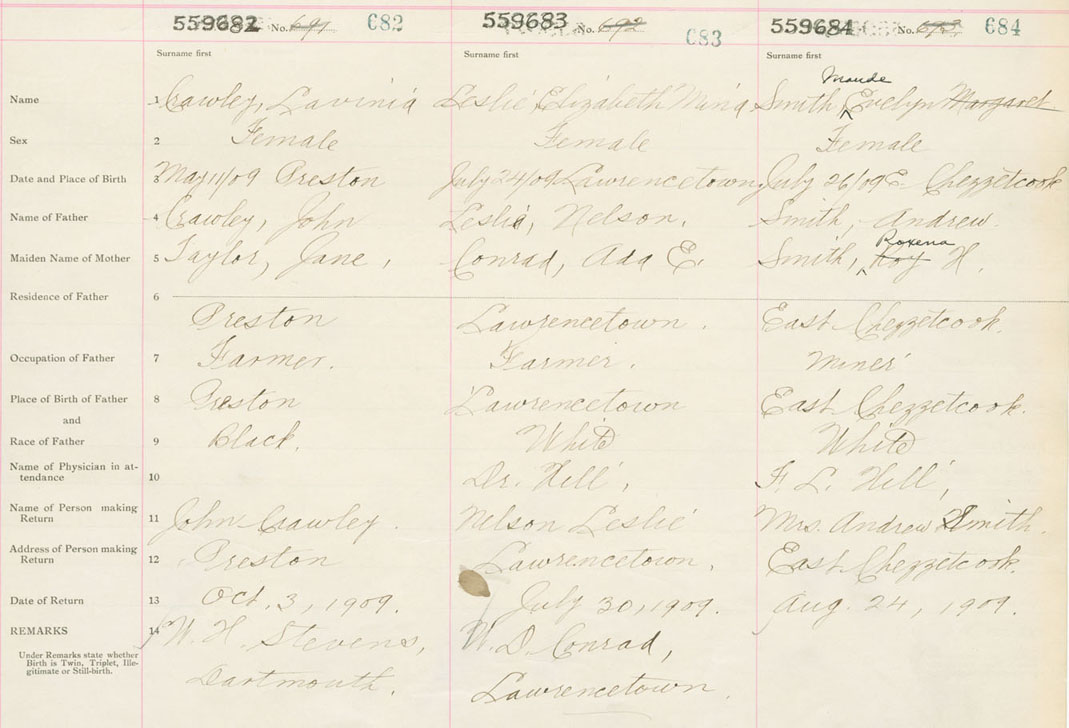 559682 No. 691 682 559683 No. 692 683 559684 No. 693 684
Surname first Surname first Surname first
Maude
Name 1 Crawley, Lavinia Leslie Elizabeth Mina Smith, Evelyn Margaret
Sex 2 Female Female Female
Date and Place of Birth 3 May 11/09 Preston July 24/09 Lawrencetown, July 26/09 E. Chezzetcook
Name of Father 4 Crawley, John Leslie, Nelson. Smith, Andrew.
Roxena
Maiden Name of Mother 5 Taylor, Jane, Conrad, Ada E. Smith, Roy H.
Residence of Father 6
Preston Lawrencetown. East Chezzetcook.
Occupation of Father 7 Farmer. Farmer. Miner
Place of Birth of Father 8 Preston Lawrencetown East Chezzetcook.
and
Race of Father 9 Black. White White
Name of Physician in at-
tendance 10 Dr. Hill, F. L. Hill,
Name of Person making
Return 11 John Crawley. Nelson Leslie Mrs. Andrew Smith.
Address of Person making
Return 12 Preston Lawrencetown. East Chezzetcook.
Date of Return 13 Oct. 3, 1909. July 30, 1909. Aug. 24, 1909.
REMARKS 14 W. H. Stevens, W. D. Conrad,
Under Remarks state whether
Birth is Twin, Triplet, Ille-
gitimate or Still-birth.
Dartmouth. Lawrencetown.